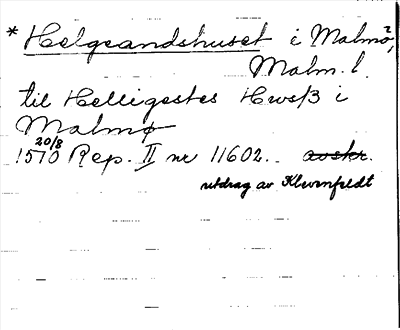 * Helgeandshuset i Malmö,
Malm. l.
til Helligestes Hwsß i
Malmø
20/8
1570 Rep. II nr 11602. avskr.
utdrag av Klevenfeldt